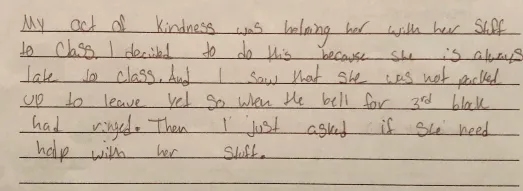 My act of kindness was helping her with her stuff
to class. I decided to do this because she is always
late to class. And I saw that she was not packed
up to leave yet so when the bell for 3rd block
had ringed. Then I just asked if she need
help with her stuff.